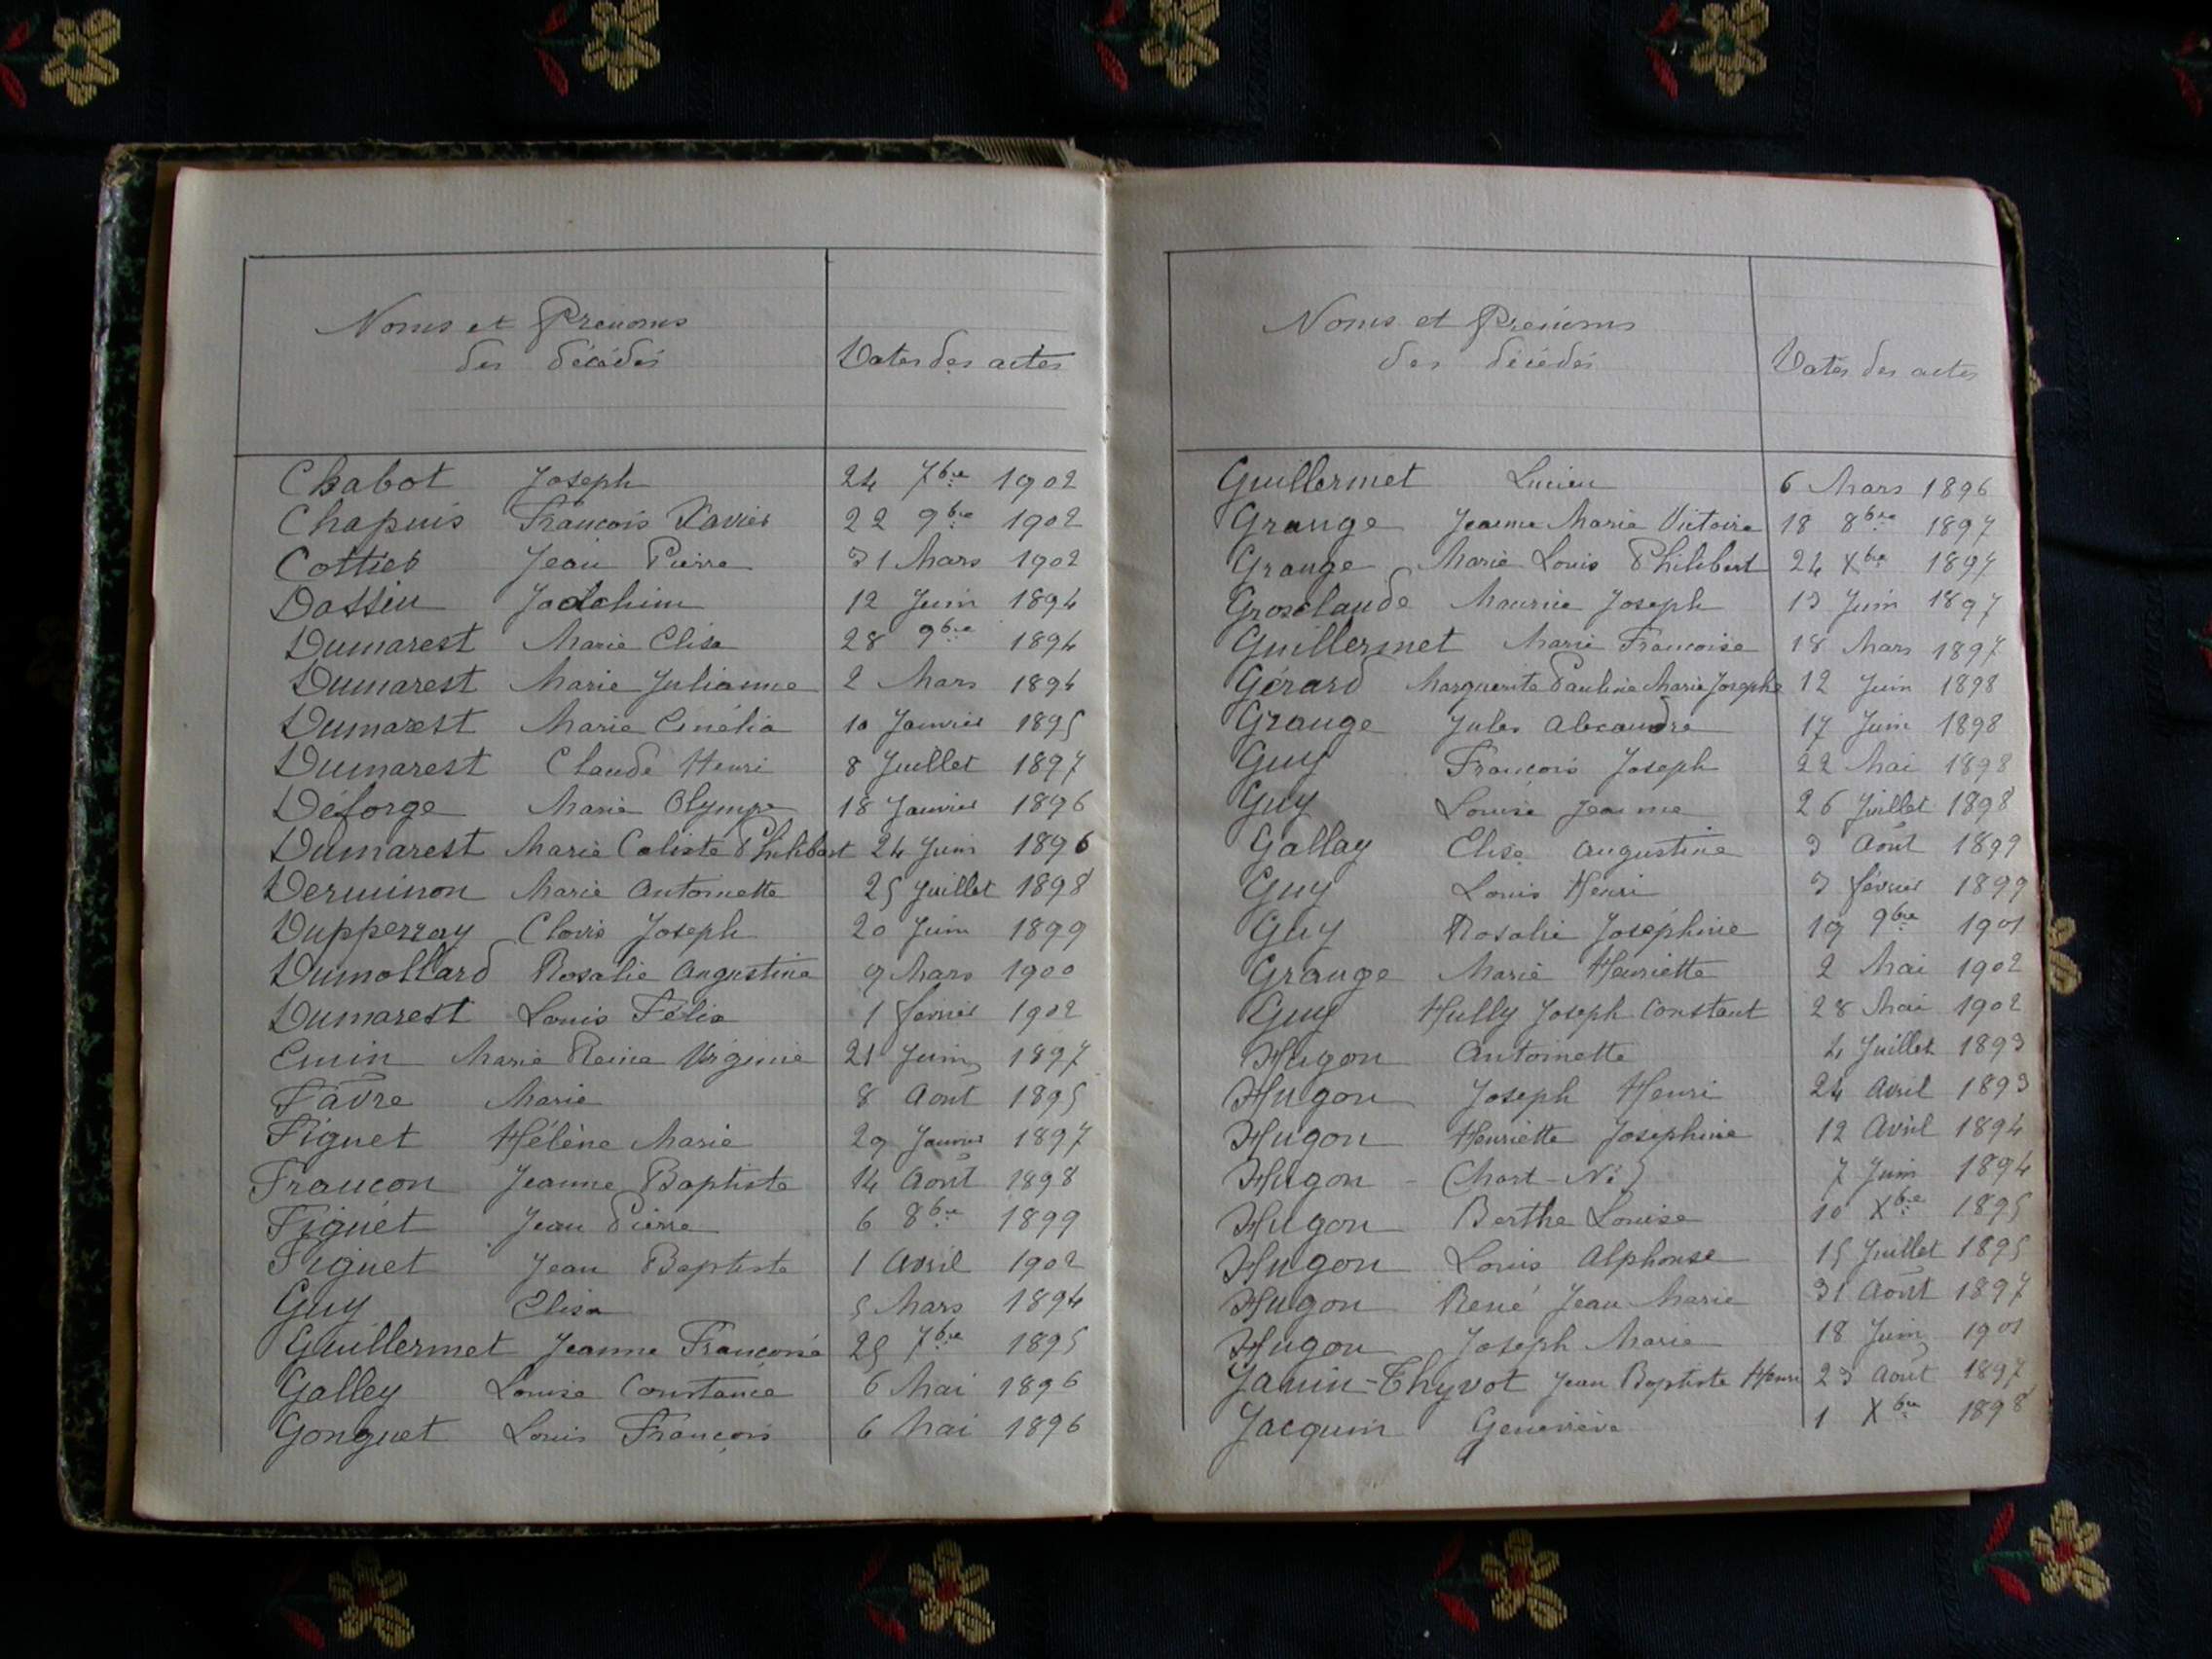 Noms et Prénoms
des décédés
Dates des actes
Chabot Joseph 24 7bre 1902
Chapuis François Xavier 22 9bre 1902
Cottier Jean Pierre 31 Mars 1902
Dassin Joachim 12 Juin 1894
Dumarest Marie Elisa 28 9bre 1894
Dumarest Marie Julianne 2 Mars 1894
Dumarest Marie 10 Janvier 1895
Dumarest Claude Henri 8 Juillet 1897
Déforge Marie Olympe 18 Janvier 1896
Dumarest Marie Caliste Philibert 24 Juin 1896
Derminon Marie Antoinette 25 Juillet 1898
Dupperray Clovis Joseph 20 Juin 1899
Dumollard Rosalie Augustine 9 Mars 1900
Dumarest Louis Félix 1 février 1902
Emin Marie Reine Virginie 21 Juin 1897
Favre Marie 8 Août 1895
Figuet Hélène Marie 29 Janvier 1897
Françon Jeanne Baptiste 14 Août 1898
Figuet Jean Pierre 6 8bre 1899
Figuet Jean Baptiste 1 Avril 1902
Guy Elisa 5 Mars 1894
Guillermet Jeanne Françoise 25 7bre 1895
Galley Louise Constance 6 Mai 1896
Gonguet Louis François 6 Mai 1896
Noms et Prénoms
des décédés
Dates des actes
Guillermet Lucien 6 Mars 1896
Grange Jeanne Marie Victoire 18 8bre 1897
Grange Marie Louis Philibert 24 Xbre 1897
Grosclaude Maurice Joseph 13 Juin 1897
Guillermet Marie Françoise 18 Mars 1897
Gérard Marguerite Pauline Marie Josephe 12 Juin 1898
Grange Jules Alexandre 17 Juin 1898
Guy François Joseph 22 Mai 1898
Guy Louise Jeanne 26 Juillet 1898
Gallay Elise Augustine 3 Août 1899
Guy Louis Henri 3 février 1899
Guy Rosalie Joséphine 19 9bre 1901
Grange Marie Henriette 2 Mai 1902
Guy Hully Joseph Constant 28 Mai 1902
Hugon Antoinette 4 Juillet 1893
Hugon Joseph Henri 24 Avril 1893
Hugon Henriette Josephine 12 Avril 1894
Hugon - 7 Juin 1894
Hugon Berthe Louise 10 Xbre 1895
Hugon Louis Alphonse 15 Juillet 1895
Hugon René Jean Marie 31 Août 1897
Hugon Joseph Marie 18 Juin 1901
Janin-Thyvot Jean Baptiste Henri 23 Août 1897
Jacquin Geneviève 1 Xbre 1898